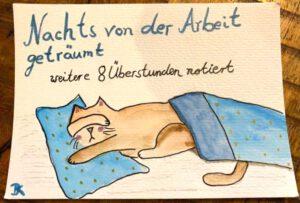 Nachts von der Arbeit
geträumt
weitere 8 Überstunden notiert